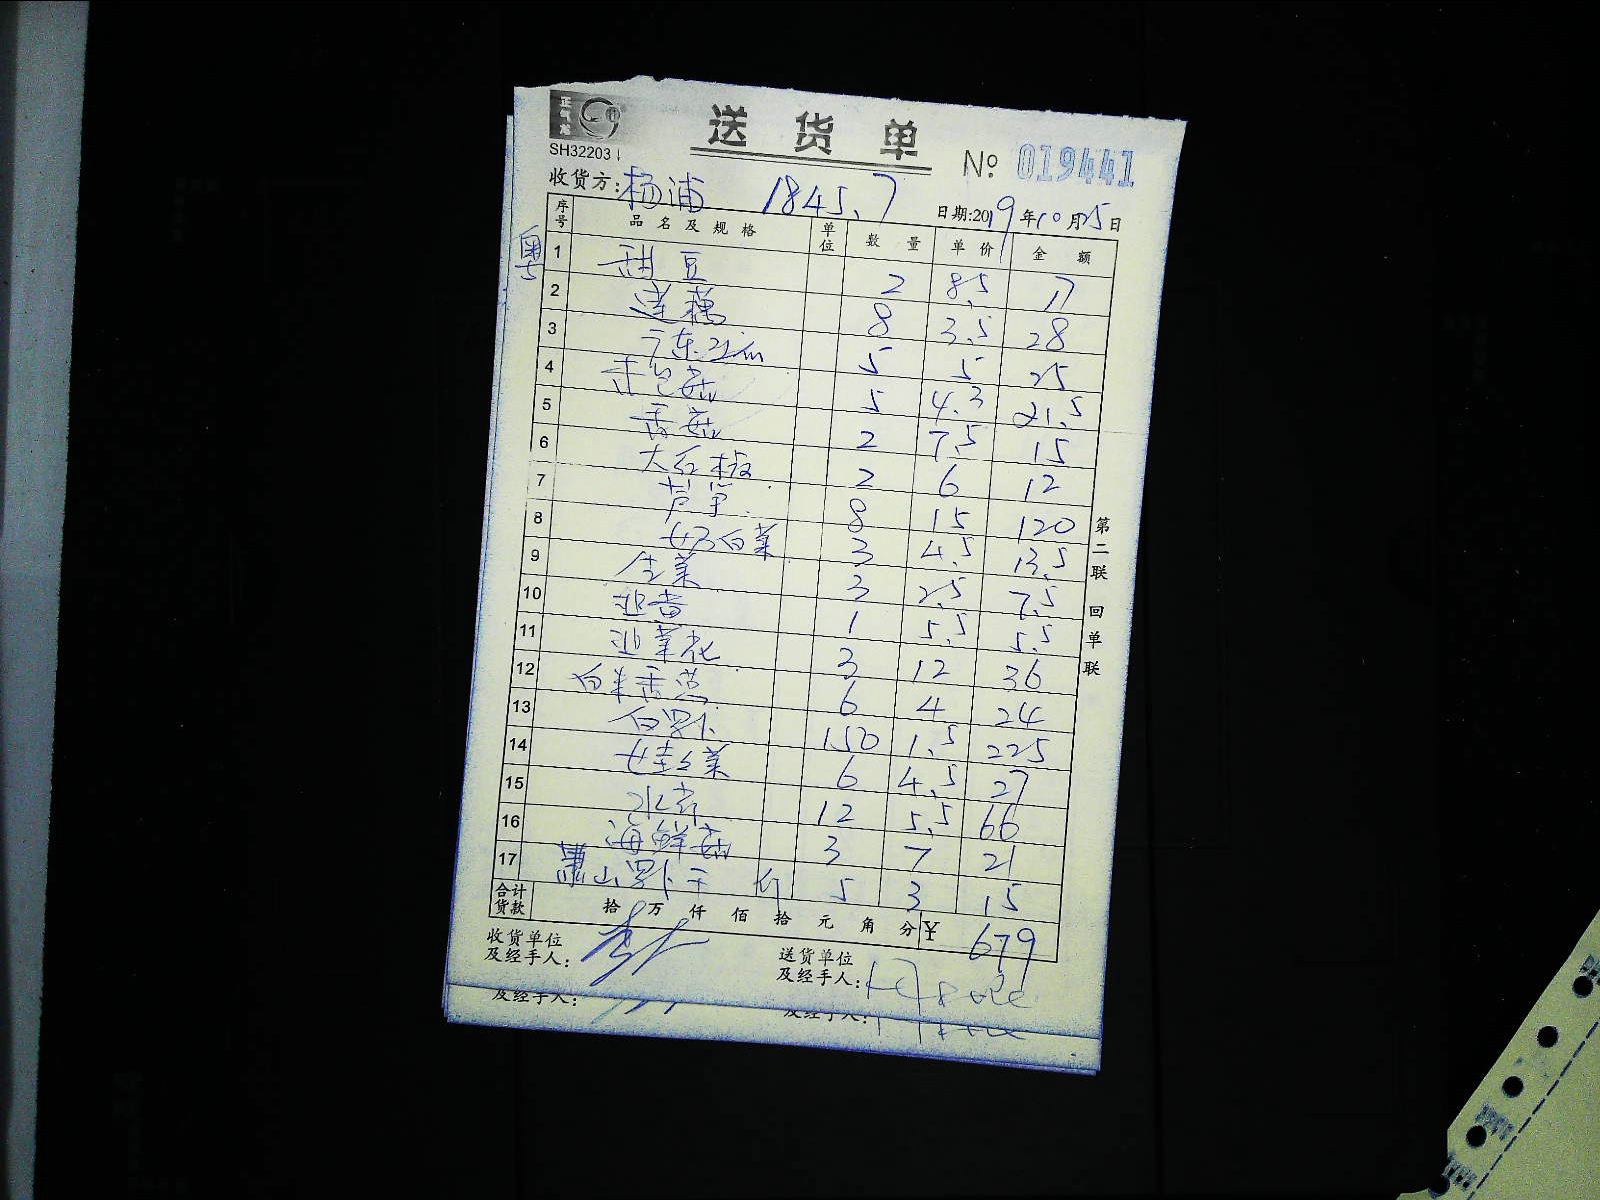 正气龙
SH32203
送货单
№ 019441
收货方: 杨浦 1845.7
日期:2019年10月25日
粤
序号 品名及规格 单位 数量 单价 金额
1 甜豆 2 8.5 17
2 莲藕 8 3.5 28
3 广东丝瓜 5 5 25
4 5 4.3 21.5
5 香菇 2 7.5 15
6 大红椒 2 6 12
7 芦笋 8 15 120
8 白菜 3 4.5 13.5
9 生菜 3 2.5 7.5
10 1 5.5 5.5
11 3 12 36
12 白米 6 4 24
13 白罗卜 150 1.5 225
14 娃娃菜 6 4.5 27
15 水芹 12 5.5 66
16 海鲜菇 3 7 21
17 萧山罗卜干 斤 5 3 15
合计货款 拾 万 仟 佰 拾 元 角 分 ¥ 679
收货单位及经手人:
送货单位及经手人:
第二联 回单联
及经手人:
及经手人: